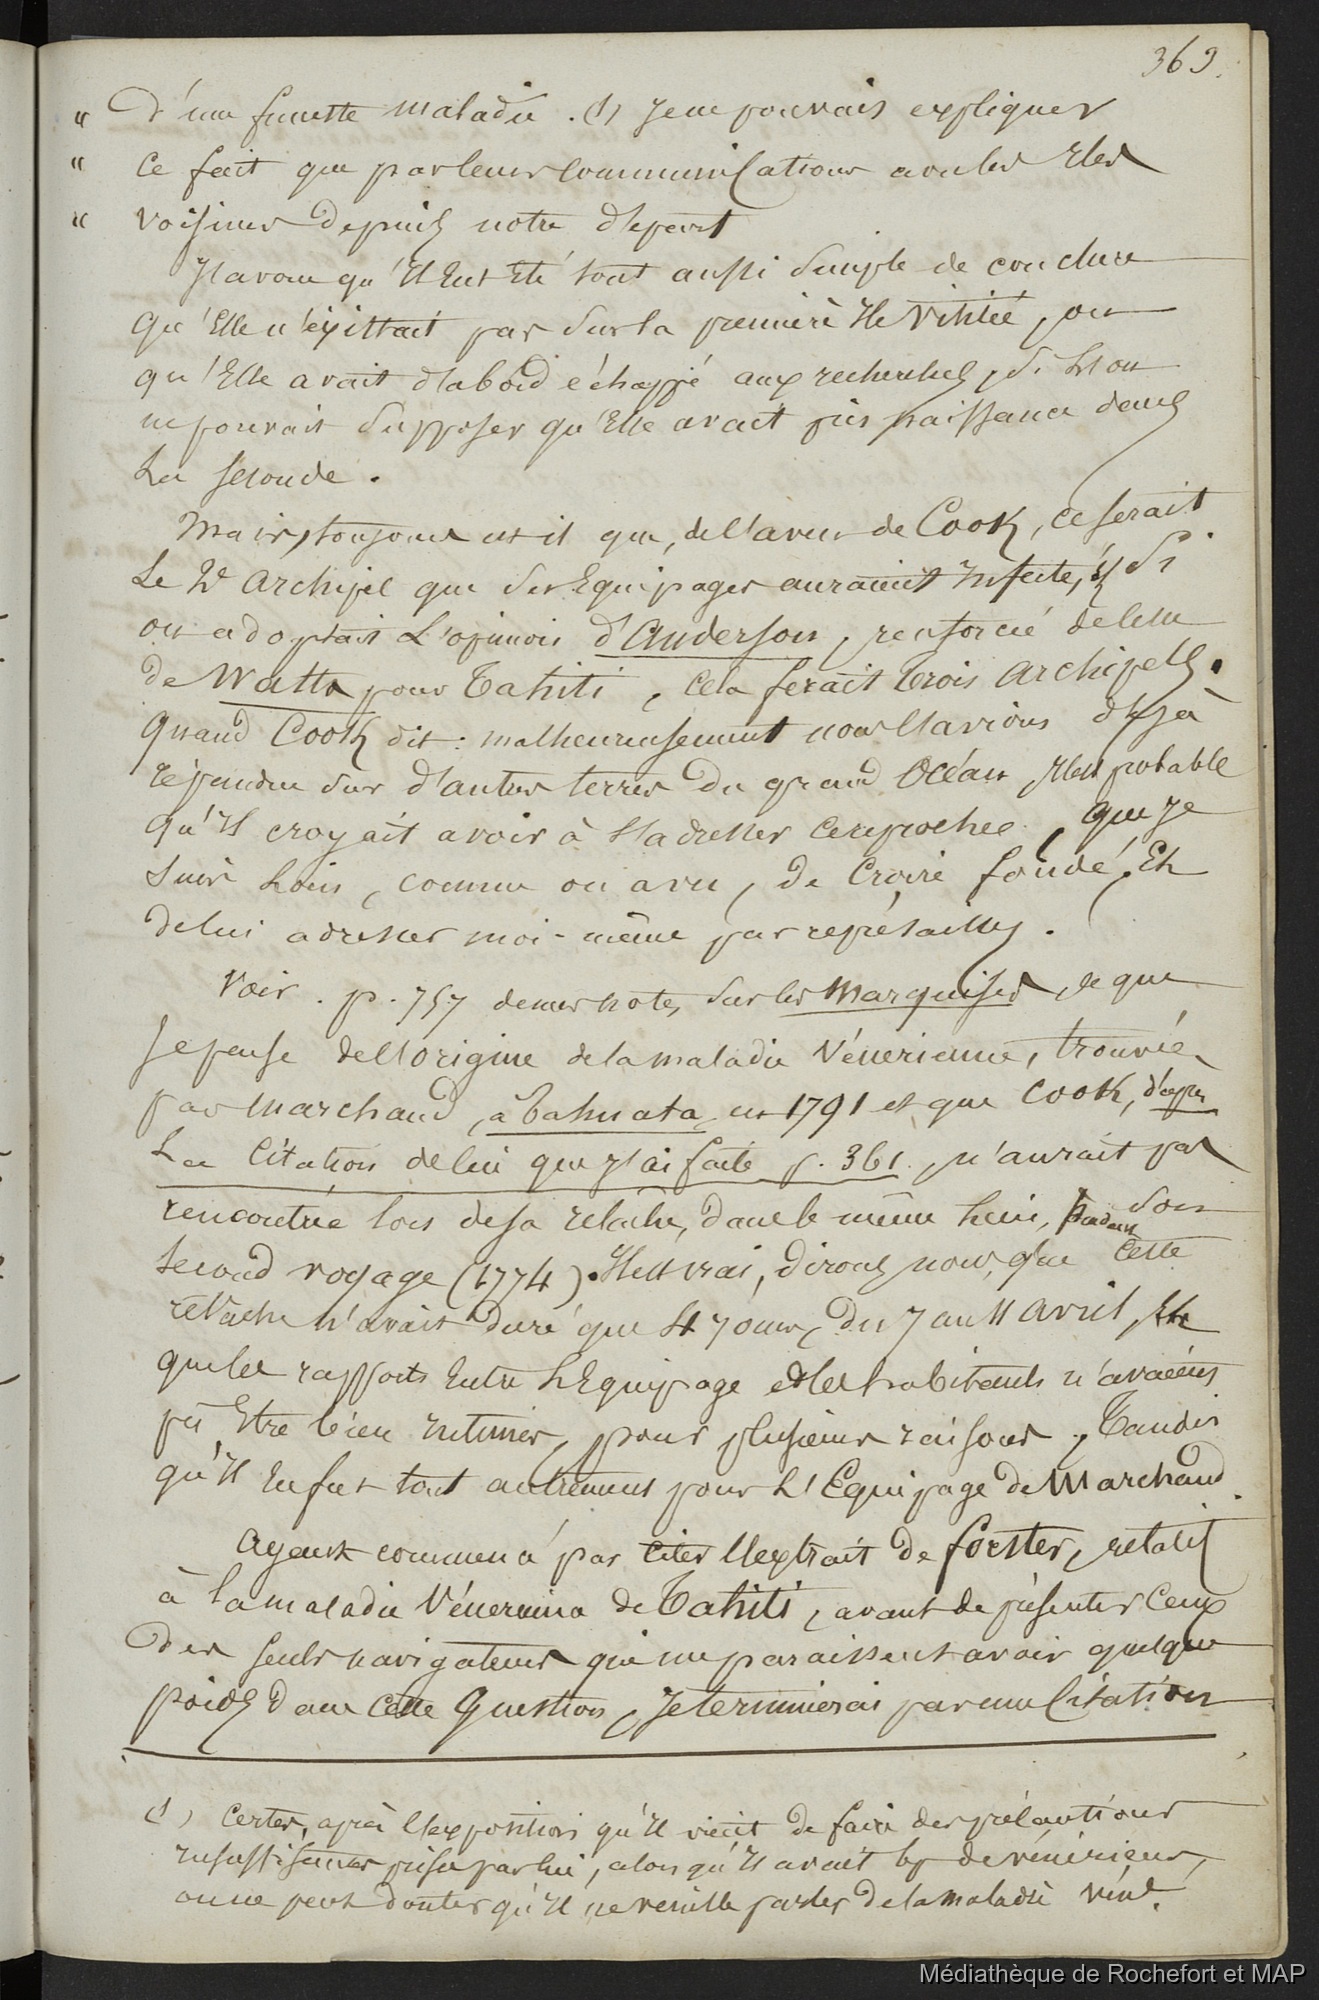 369.
" d'une funeste maladie. (1) Je ne pouvais expliquer
" ce fait que par leurs communications avec les Iles
" voisines depuis notre départ
J'avoue qu'Il eut Eté tout aussi simple de conclure
qu'Elle n'éxistait pas sur la première Ile visitée, ou
qu'Elle avait d'abord échappé aux recherches, si l'on
ne pouvait supposer qu'Elle avait pris naissance dans
La seconde.
Mais, toujours est il que, de l'aveu de Cook, ce serait
Le 2e archipel que ses Equipages auraient Infecté, & si
on adoptait L'opinion d'Anderson, renforcée de celle
de Watts pour Tahiti, cela ferait trois archipels.
Quand Cook dit : malheureusement nous l'avions déjà
répandue sur d'autres terres du grand Océan, Il est probable
qu'Il croyait avoir à s'adresser ce reproche, que je
suis loin, comme on a vu, de croire fondé, Et
de lui adresser moi-même par représailles.
Voir. p. 757 de mes notes sur les Marquises, ce que
Je pense de l'origine de la maladie Vénérienne, trouvée
par Marchand, à Tahuata, en 1791 et que Cook, d'après
La Citation de lui que J'ai faite p. 361, n'aurait pas
rencontrée lors de sa relâche, dans le même lieu, pendant son
second voyage (1774). Il est vrai, dirons nous, que cette
relâche n'avait duré que 4 jours, du 7 au 11 avril, Et
que les rapports Entre L'Equipage et les habitants n'avaient
pû Etre bien Intimes, pour plusieurs raisons, Tandis
qu'Il En fut tout autrement pour L'Equipage de Marchand.
Ayant commencé par citer l'extrait de forster, relatif
à la maladie Vénérienne de Tahiti, avant de présenter Ceux
des seuls navigateurs qui me paraissent avoir quelque
poids dans cette Question, Je terminerai par une Citation
(1) Certes, après l'exposition qu'Il vient de faire des précautions
Insuffisantes prises par lui, alors qu'Il avait bp de vénériens,
on ne peut douter qu'Il ne veuille parler de la maladie véne.
Médiathèque de Rochefort et MAP